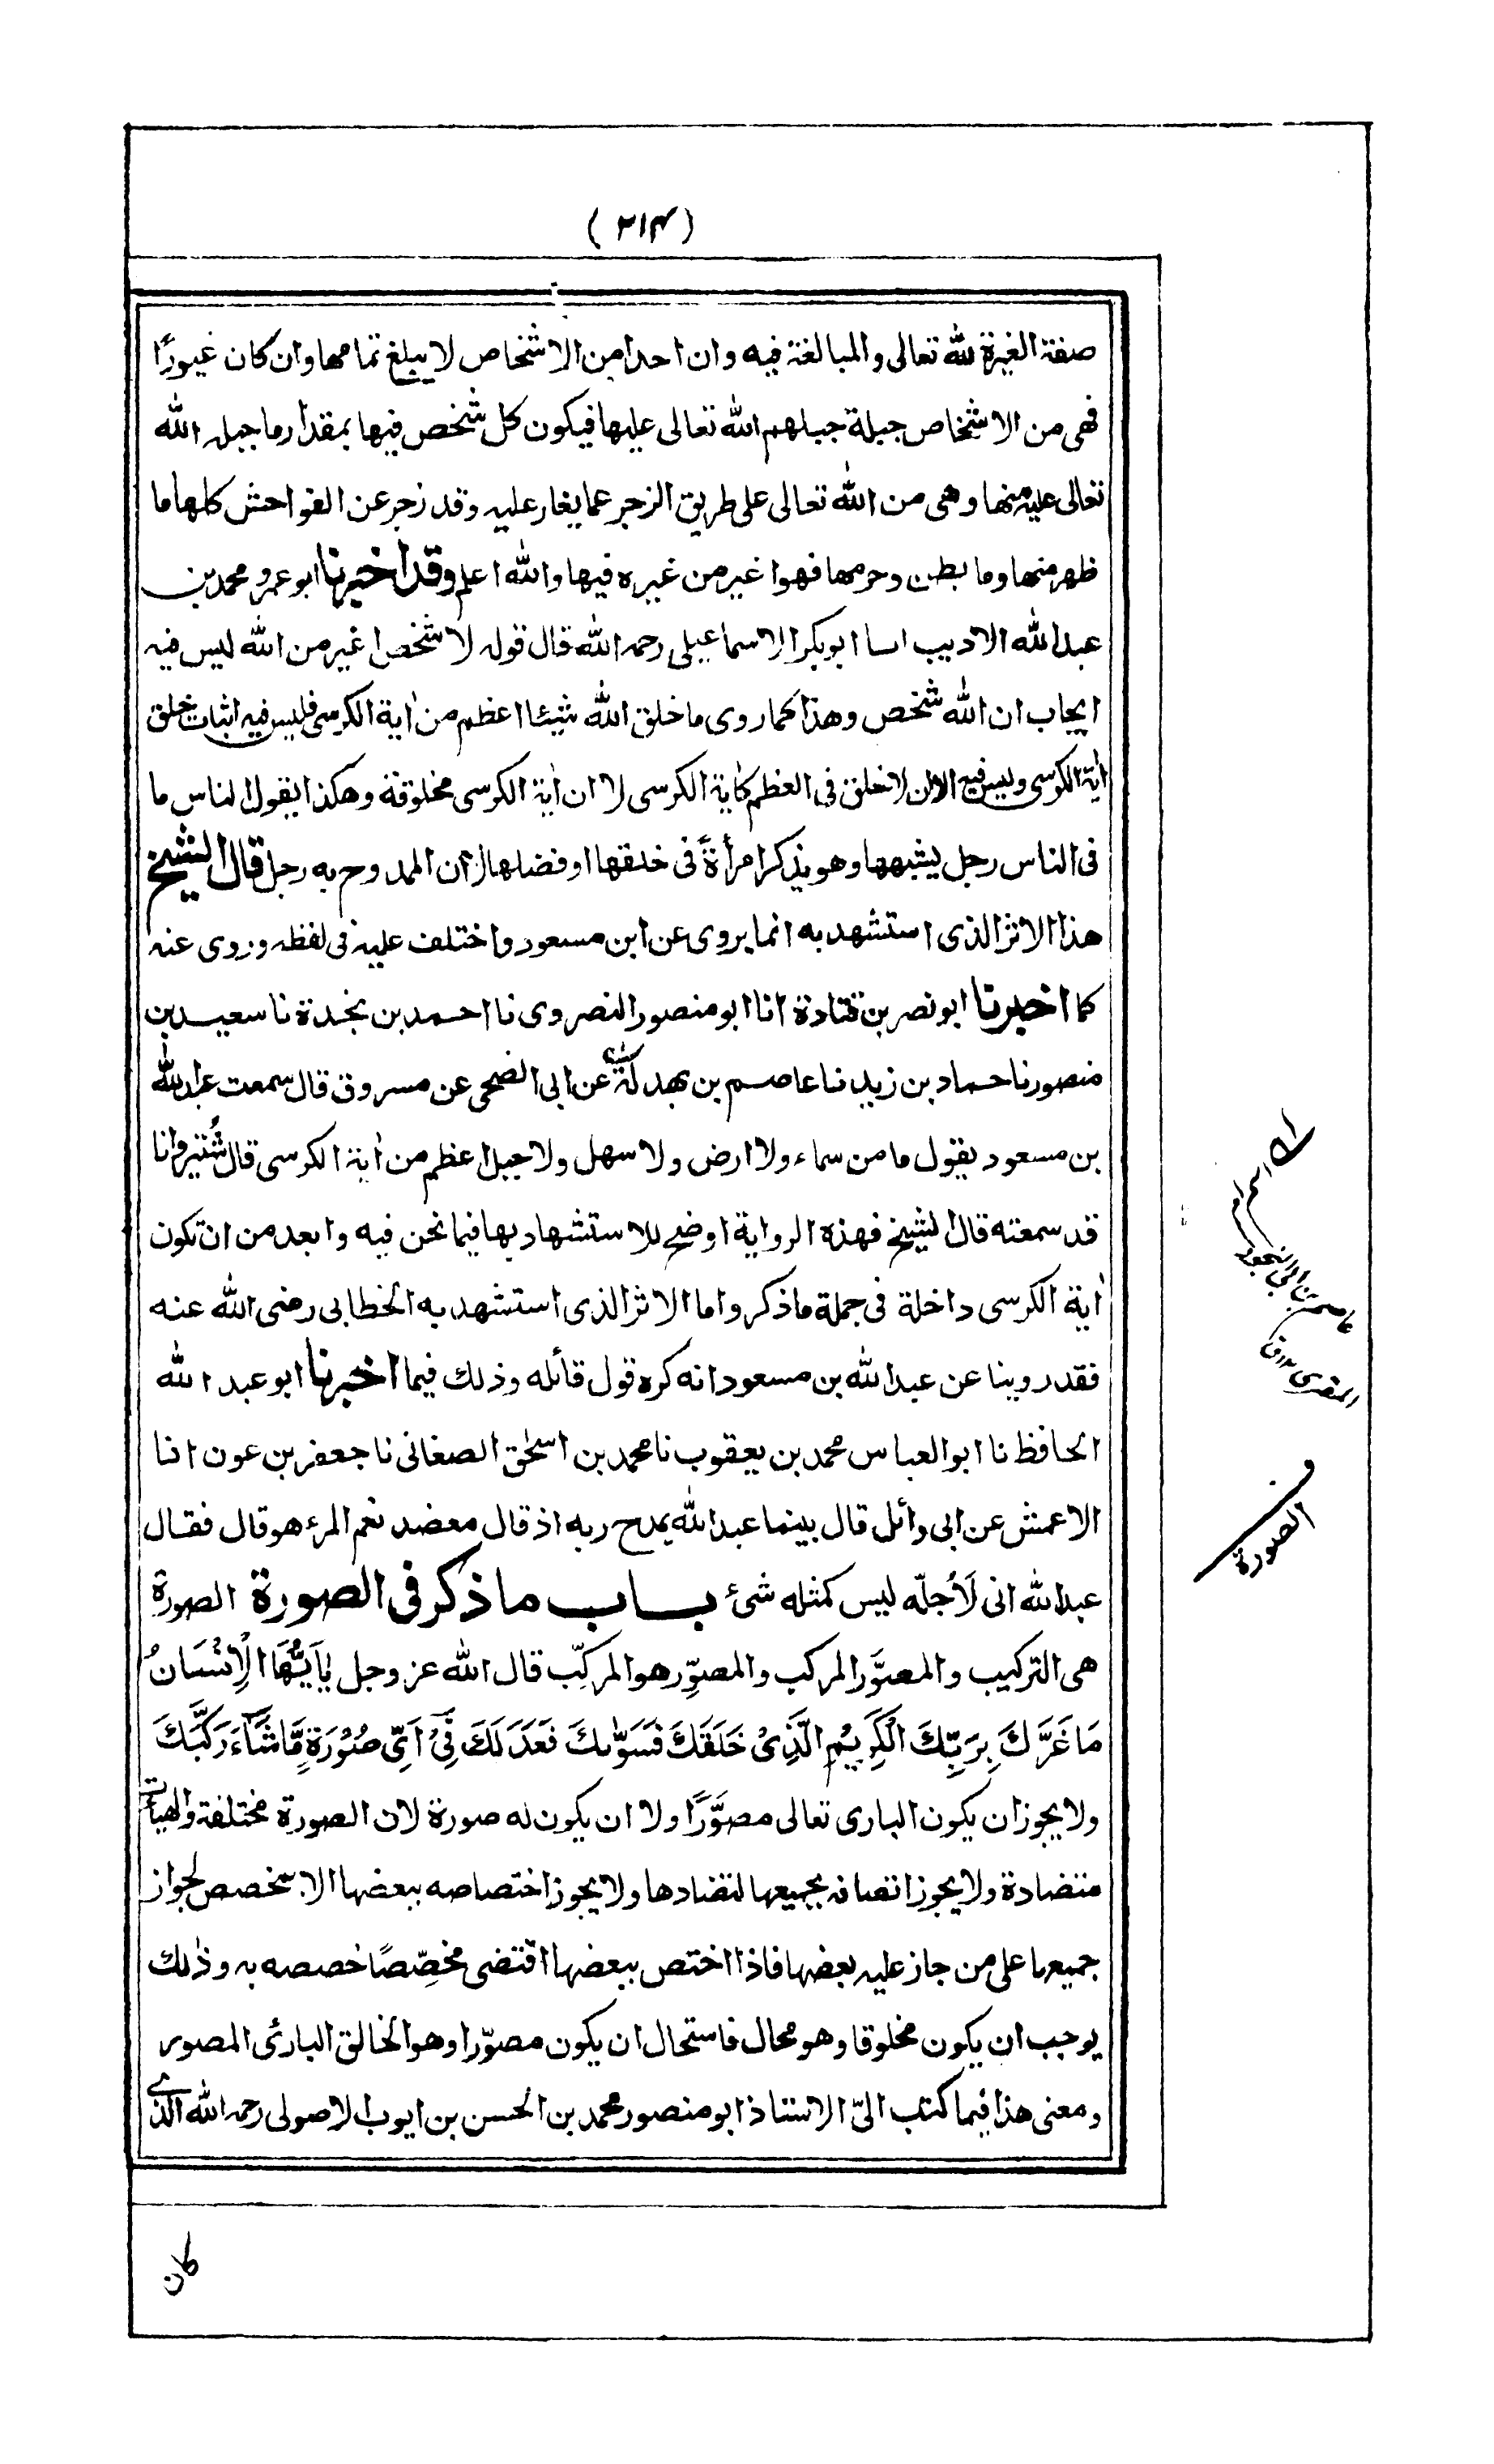 (٢١٤)
صفة الغيرة لله تعالى والمبالغة فيه وان احدا من الاشخاص لا يبلغ تمامها وان كان غيورًا
فهى من الاشخاص جبلة جبلهم الله تعالى عليها فيكون كل شخص فيها بمقدار ما جبله الله
تعالى عليه منها وهى من الله تعالى على طريق الزجر عما يغار عليه وقد زجر عن الفواحش كلها ما
ظهر منها وما بطن وحرمها فهو اغير من غيره فيها والله اعلم وقد اخبرنا ابو عمرو محمد بن
عبد الله الاديب انا ابو بكر الاسماعيلى رحمه الله قال قوله لا شخص اغير من الله ليس فيه
ايجاب ان الله شخص وهذا كما روى ما خلق الله شيئا اعظم من اٰية الكرسى فليس فيه اثبات خلق
اٰية الكرسى وليس فيه الا ان لا خلق فى العظم كاٰية الكرسى لا ان اٰية الكرسى مخلوقة وهكذا يقول الناس ما
فى الناس رجل يشبهها وهو يذكر امرأةً فى خلقها او فضلها لا ان الممدوح به رجل قال الشيخ
هذا الاثر الذى استشهد به انما يروى عن ابن مسعود واختلف عليه فى لفظه وروى عنه
كما اخبرنا ابو نصر بن قتادة انا ابو منصور النصروى نا احمد بن نجدة نا سعيد بن
منصور نا حماد بن زيد نا عاصم بن بهدلة عن ابى الضحى عن مسروق قال سمعت عبد الله
بن مسعود يقول ما من سماء ولا ارض ولا سهل ولا جبل اعظم من اٰية الكرسى قال شُتير وانا
قد سمعته قال الشيخ فهذه الرواية اوضح للاستشهاد بها فيما نحن فيه وابعد من ان تكون
اٰية الكرسى داخلة فى جملة ما ذكر واما الاثر الذى استشهد به الخطابى رضى الله عنه
فقد روينا عن عبد الله بن مسعود انه كره قول قائله وذلك فيما اخبرنا ابو عبد الله
الحافظ نا ابو العباس محمد بن يعقوب نا محمد بن اسحٰق الصغانى نا جعفر بن عون انا
الاعمش عن ابى وائل قال بينما عبد الله يمدح ربه اذ قال معضد نعم المرء هو قال فقال
عبد الله انى لَاُجلّه ليس كمثله شئ باب ما ذكر فى الصورة الصورة
هى التركيب والمصوَّر المركب والمصوِّر هو المركِّب قال الله عز وجل يٰاَيُّهَا الْاِنْسَانُ
مَا غَرَّكَ بِرَبِّكَ الْكَرِيْمِ الَّذِىْ خَلَقَكَ فَسَوّٰىكَ فَعَدَلَكَ فِىْٓ اَىِّ صُوْرَةٍ مَّا شَآءَ رَكَّبَكَ
ولا يجوز ان يكون البارى تعالى مصوَّرًا ولا ان يكون له صورة لان الصورة مختلفة والهيأت
متضادة ولا يجوز اتصافه بجميعها لتضادها ولا يجوز اختصاصه ببعضها الا بمخصص لجواز
جميعها على من جاز عليه بعضها فاذا اختص ببعضها اقتضى مخصِّصًا خصصه به وذٰلك
يوجب ان يكون مخلوقا وهو محال فاستحال ان يكون مصوّرا وهو الخالق البارئ المصور
ومعنى هذا فيما كتب الىّ الاستاذ ابو منصور محمد بن الحسن بن ايوب الاصولى رحمه الله الذى
اسم امه
عاصم بن ابى النجود
المقرى
الصورة
كان